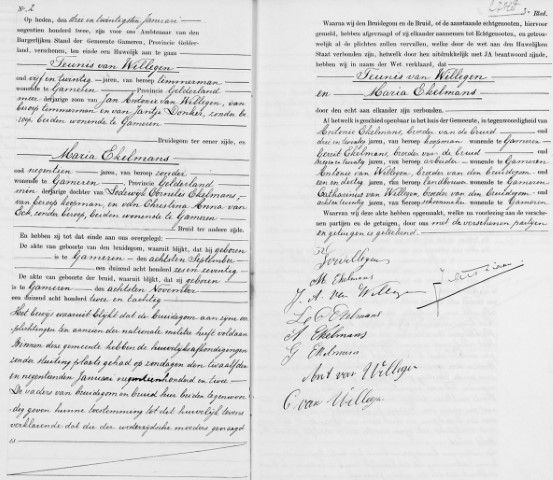 N°. 2
Op heden, den drie en twintigsten Januari
negentien honderd twee, zijn voor ons Ambtenaar van den
Burgerlijken Stand der Gemeente Gameren, Provincie Gelder-
land, verschenen, ten einde een Huwelijk aan te gaan:
Teunis van Willegen
oud vijf en twintig jaren, van beroep timmerman
wonende te Gameren Provincie Gelderland
meerderjarige zoon van Jan Antonie van Willegen, van
beroep timmerman en van Jantje Donker, zonder be-
roep, beiden wonende te Gameren
Bruidegom ter eener zijde, en
Maria Ekelmans
oud negentien jaren, van beroep zonder
wonende te Gameren, Provincie Gelderland
minderjarige dochter van Lodewijk Cornelis Ekelmans,
van beroep koopman, en van Christina Anna van
Ooh, zonder beroep, beiden wonende te Gameren
Bruid ter andere zijde.
En hebben zij tot dat einde aan ons overgelegd:
De akte van geboorte van den bruidegom, waaruit blijkt, dat hij geboren
is te Gameren den achtsten September
een duizend acht honderd zes en zeventig
De akte van geboorte der bruid, waaruit blijkt, dat zij geboren
is te Gameren den achtsten November
een duizend acht honderd twee en tachtig
Het bewijs waaruit blijkt dat de Bruidegom aan zijne ver-
plichtingen ten aanzien der nationale militie heeft voldaan
Binnen deze gemeente hebben de huwelijksafkondigingen
zonder stuiting plaats gehad op zondagen den twaalfden
en negentienden Januari negentienhonderd en twee
De vaders van bruidegom en bruid hier beiden tegenwoor-
dig geven hunne toestemming tot dit huwelijk tevens
verklarende dat die der wederzijdsche moeders gevraagd
is
3e Blad.
Waarna wij den Bruidegom en de Bruid, of de aanstaande echtgenooten, hiervoor
gemeld, hebben afgevraagd of zij elkander aannemen tot Echtgenooten, en getrouw-
elijk al de plichten zullen vervullen, welke door de wet aan den Huwelijken
Staat verbonden zijn, hetwelk door hen uitdrukkelijk met JA beantwoord zijnde,
hebben wij in naam der Wet verklaard, dat
Teunis van Willegen
en Maria Ekelmans
door den echt aan elkander zijn verbonden.
Al hetwelk is geschied openbaar in het huis der Gemeente, in tegenwoordigheid van
Antonie Ekelmans, broeder van de bruid oud
drie en twintig jaren, van beroep koopman te Gameren
Gerrit Ekelmans, broeder van de bruid oud
jaren, van beroep arbeider te Gameren
Antonie van Willegen, broeder van den bruidegom oud
een en dertig jaren, van beroep landbouwer te Gameren
van Willegen, broeder van den bruidegom oud
acht en twintig jaren, van beroep schoenmaker te Gameren
Waarvan wij deze akte hebben opgemaakt, welke na voorlezing aan de verschenen
partijen en de getuigen, door ons met de verschenen partijen
en getuigen is geteekend.
T v Willegen
M. Ekelmans
J. A. van Willegen
L. C. Ekelmans
A Ekelmans
G Ekelmans
Ant van Willegen
C. van Willegen